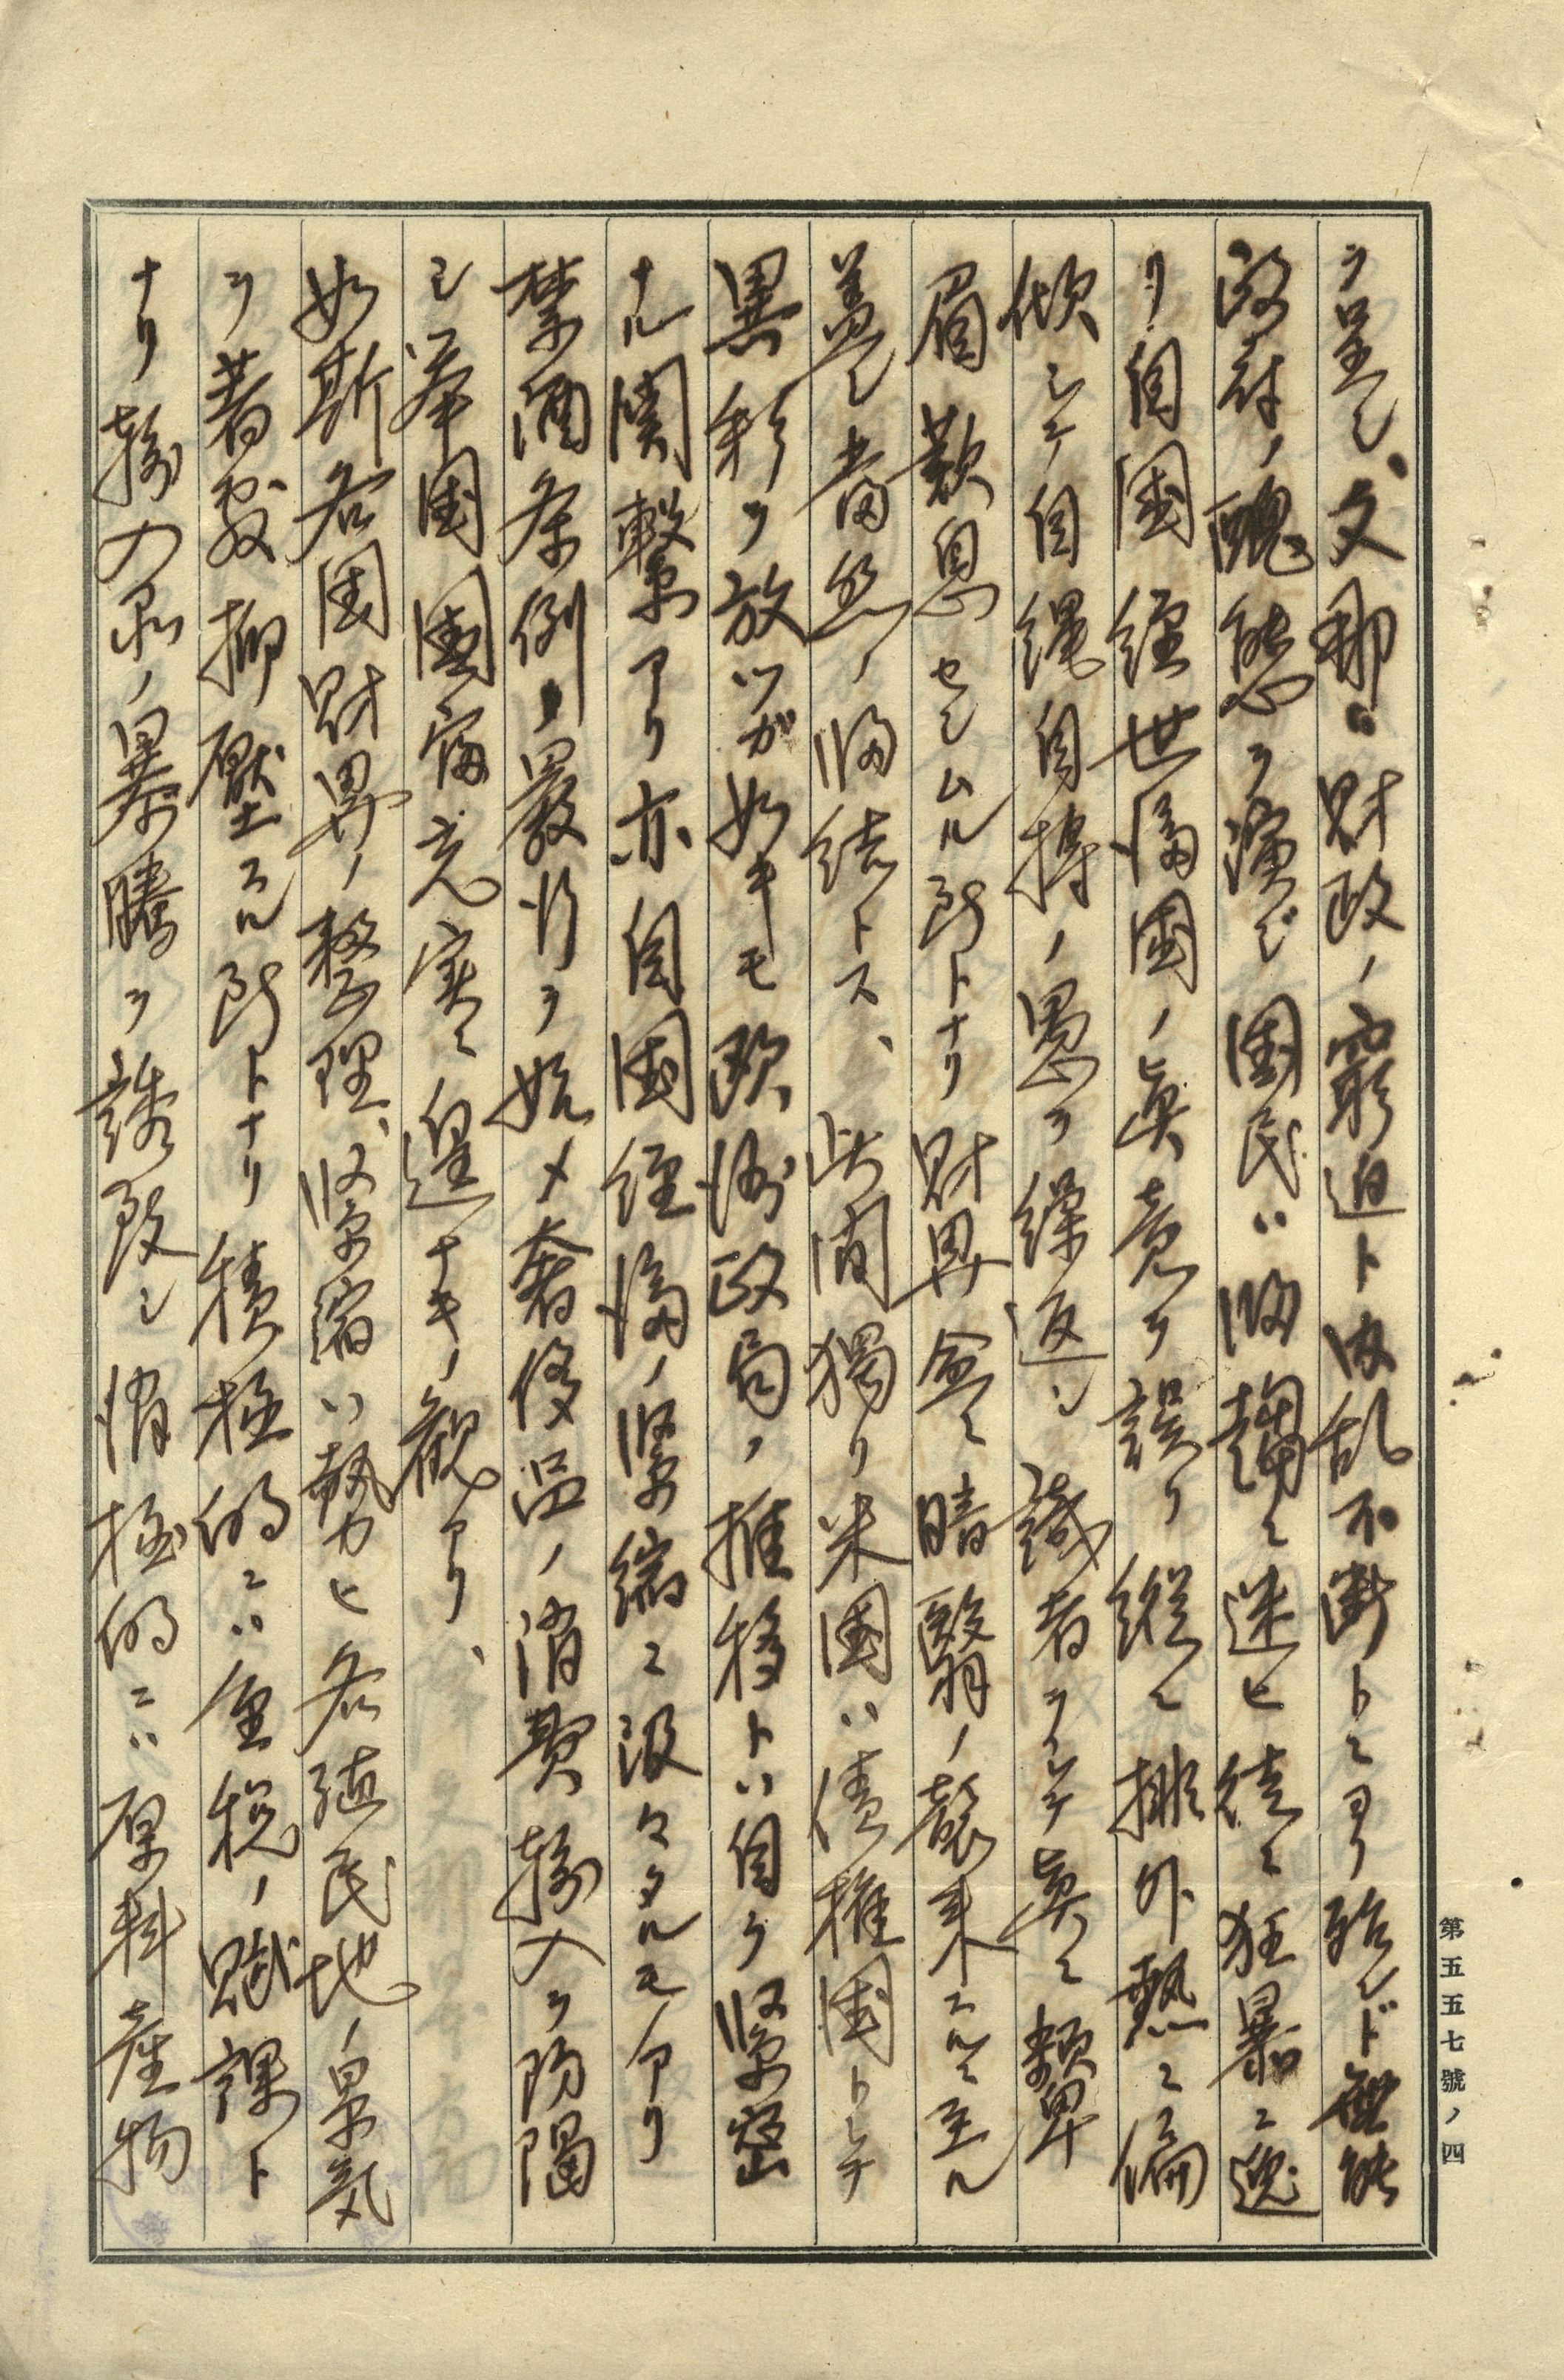 ヲ呈シ、支那ハ財政ノ窮迫ト内乱不断トニヨリ殆ンド無能
政府ノ醜態ヲ演ジ国民ハ附和ニ迷ヒ徒ニ狂暴ニ逸
リ自国経世済国ノ真意ヲ誤リ縦ニ排外熱ニ偏
倾シテ自縄自搏ノ愚ヲ繰返シ識者ヲシテ真ニ顰
眉歎息セシムル所トナリ財界企ニ暗翳ノ襲来スルニ至ル
蓋シ当然ノ帰結トス、此間獨リ米国ハ債権国トシテ
異彩ヲ放ツガ如キモ欧洲政局ノ推移トハ自ラ緊密
ナル関繋アリ亦自国経済ノ緊縮ニ汲々タルモノアリ
禁酒条例ノ厳行ヲ始メ奢侈品ノ消費輸入ヲ防遏
シ挙国国富充実ニ遑ナキノ観アリ、
如斯各国財界ノ整理、緊縮ハ勢力ヒ各殖民地ノ景気
ヲ著敷抑壓スル所トナリ積極的ニハ重税ノ賦課ト
ナリ輸入品ノ暴騰ヲ誘致シ消極的ニハ原料産物
第五五七號ノ四